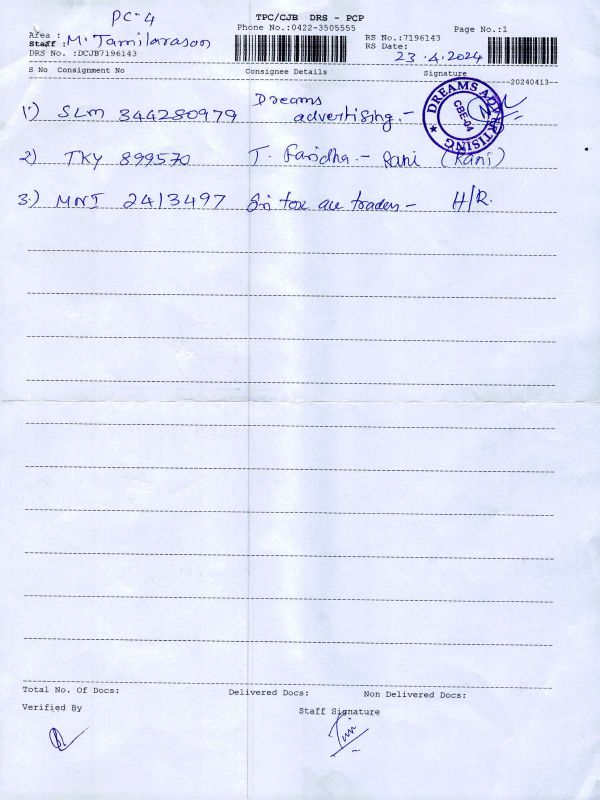 PC-4
TPC/CJB DRS - PCP
Phone No.:0422-3505555
Page No.:1
Area :
Staff : M. Tamilarason
RS No.:7196143
RS Date:
23.4.2024
DRS No. :DCJB7196143
S No Consignment No Consignee Details Signature
20240413
1) SLM 344280979 Dreams advertising.-
DREAMS ADVERTISING CBE-04
2) TKY 899570 T. Faridha - Rani (Rani)
3.) MNJ 2413497 traders - H/R.
Total No. Of Docs: Delivered Docs: Non Delivered Docs:
Verified By
Staff Signature